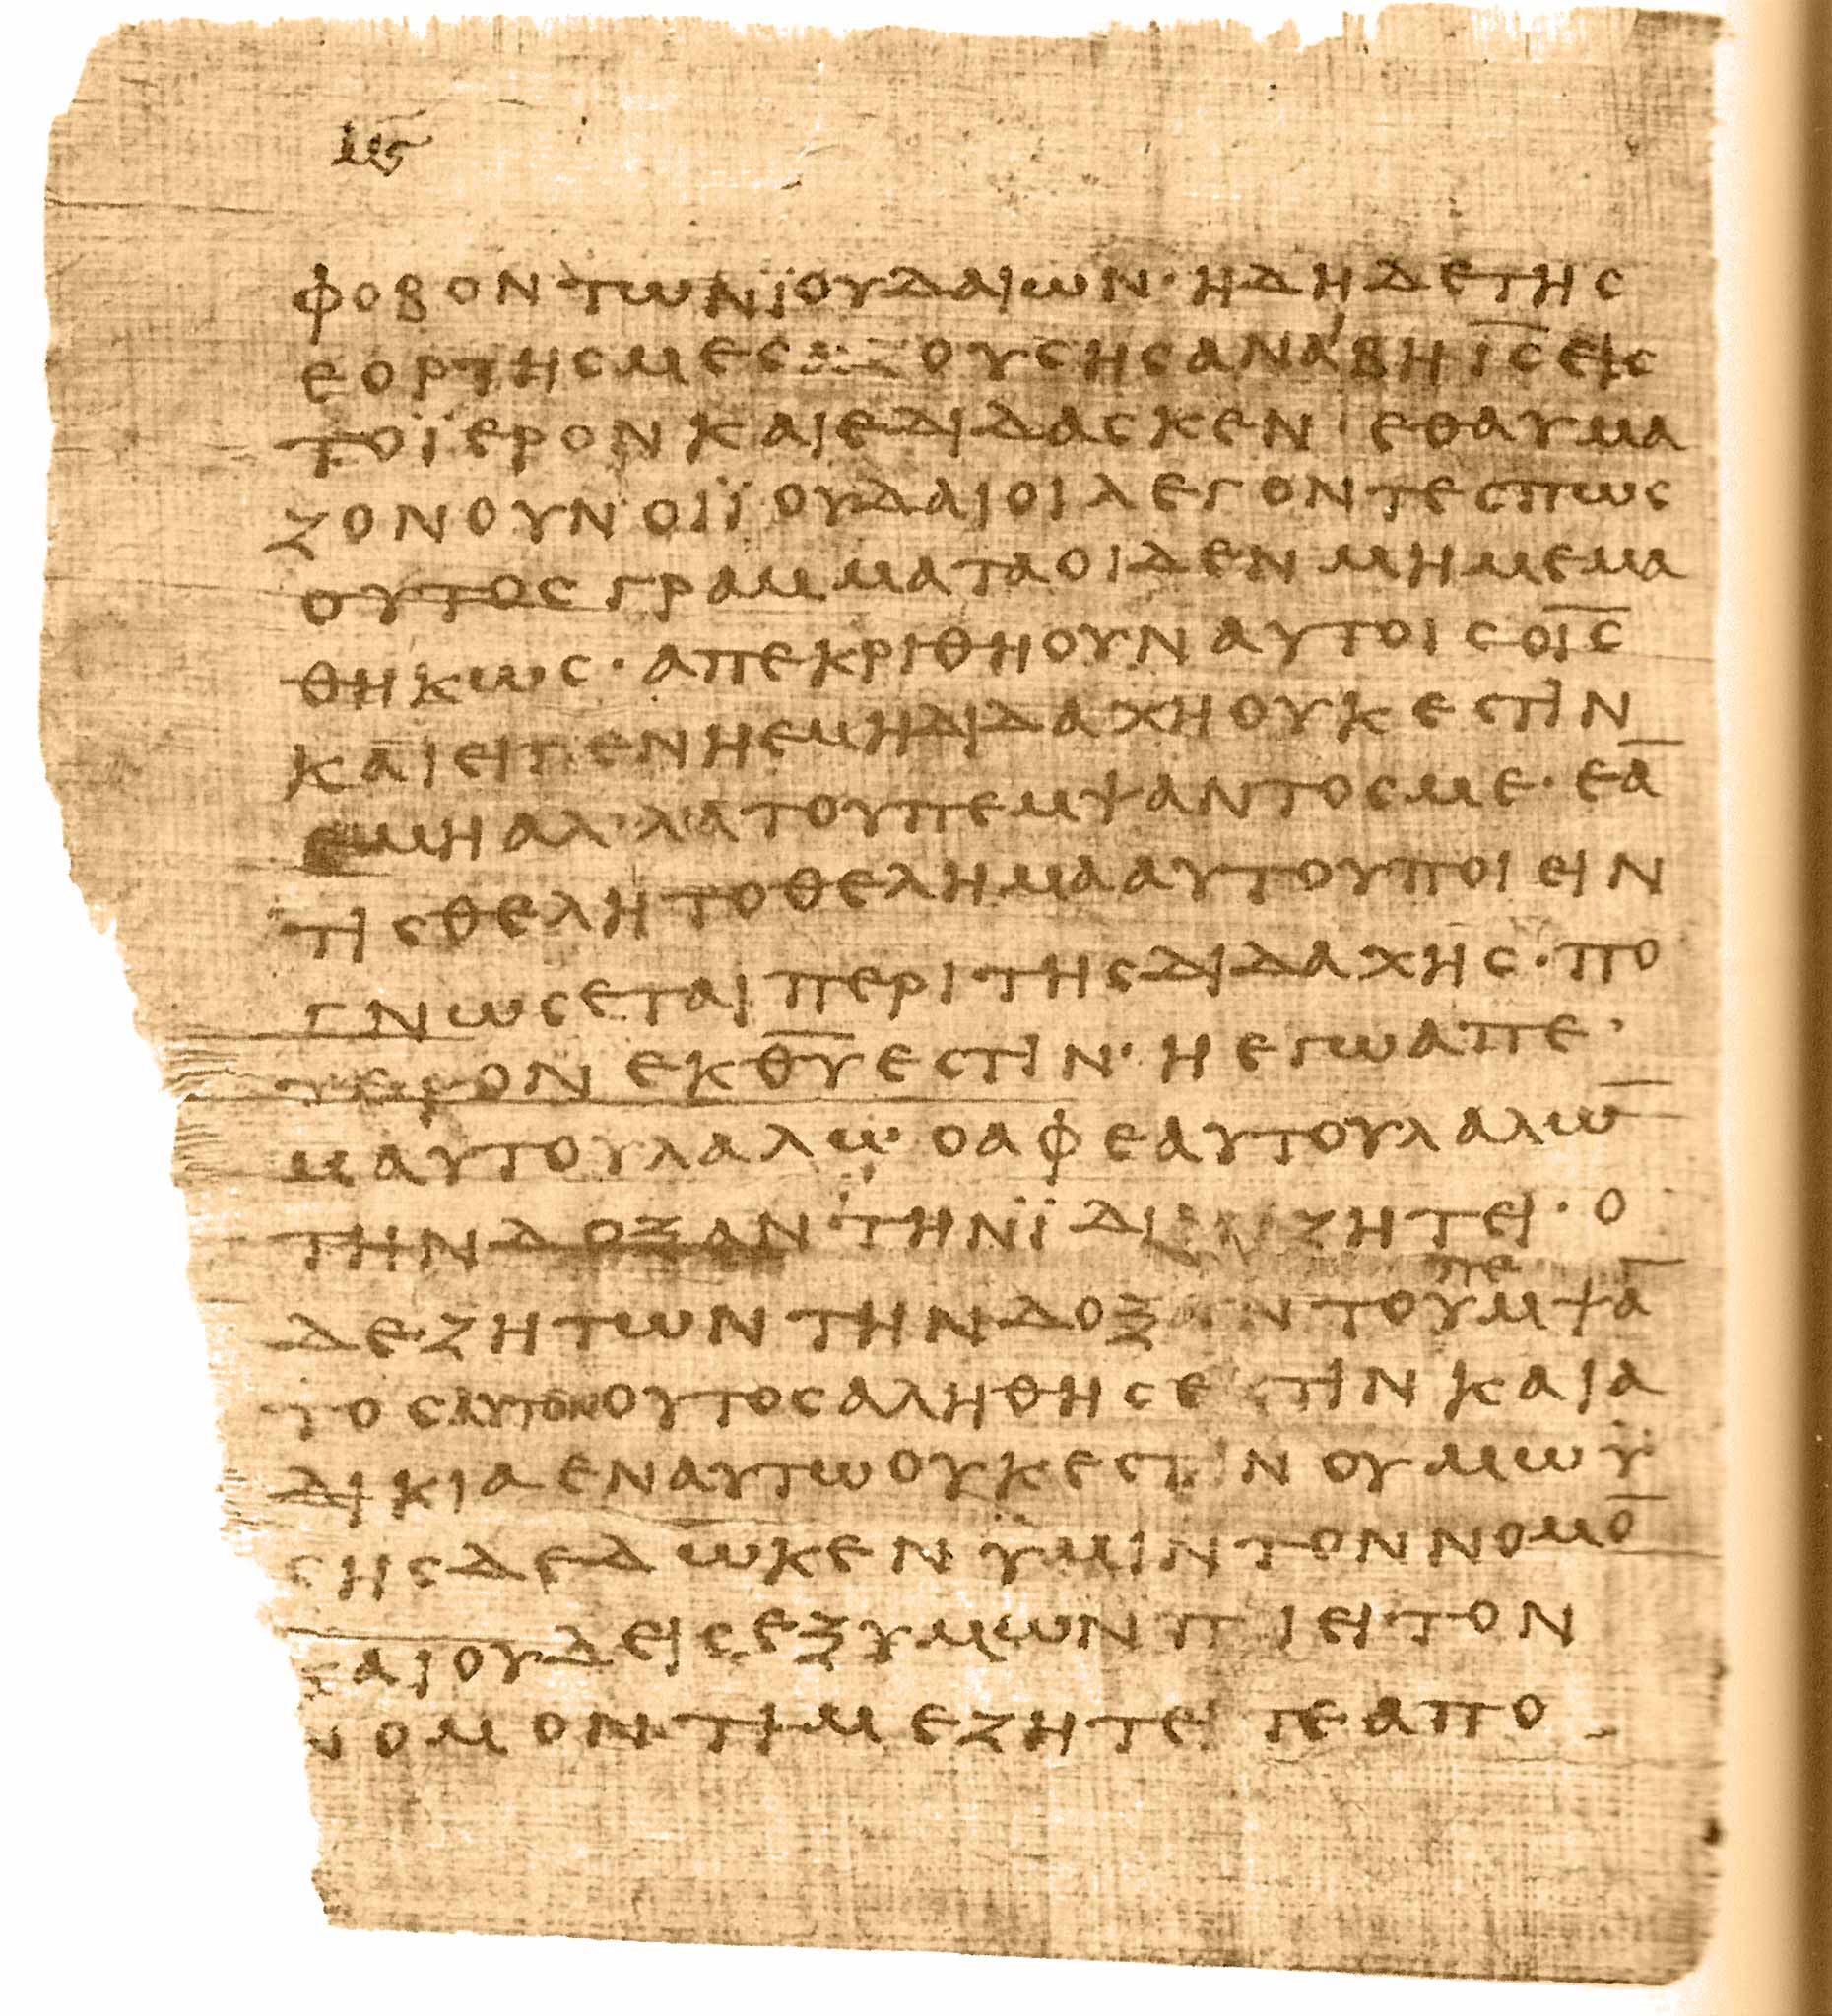 μϛ
φοβον των ϊουδαιων· ηδη δε της
εορτης μεσαζουσης αναβη ι̅ς̅ εις
το ϊερον και εδιδασκεν· εθαυμα
ζον ουν οι ϊουδαιοι λεγοντες πως
ουτος γραμματα οιδεν μη μεμα
θηκως· απεκριθη ουν αυτοις ο ι̅ς̅
και ειπεν η εμη διδαχη ουκ εστιν
εμη αλ᾽λα του πεμψαντος με· εα̅
τις θελη το θελημα αυτου ποιειν
γνωσεται περι της διδαχης· πο
τερον εκ θ̅υ̅ εστιν· η εγω απ ε᾽
μαυτου λαλω· ο αφ εαυτου λαλω̅
την δοξαν την ϊδι ζητει· ο
δε ζητων την δοξαν του ⸌πε⸍μψα̅
τος αυτον ουτος αληθης εστιν και α
δικια εν αυτω ουκ εστιν ου μωϋ
σης δεδωκεν ϋμιν τον νομο̅
και ουδεις εξ υμων π ιει τον
νομον· τι με ζητειτε απο